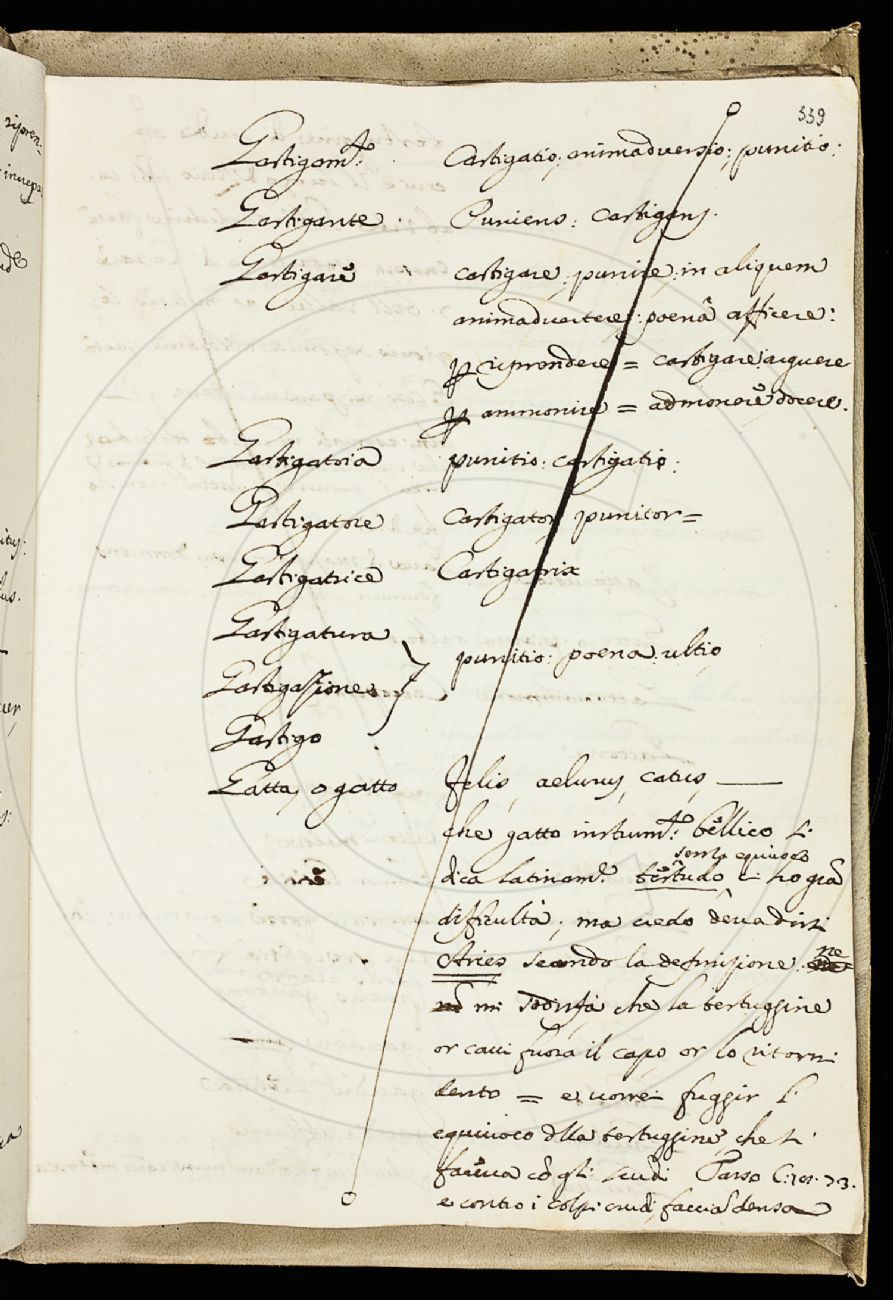 339
Gastigam.to Castigatio, animadversio, punitio:
Gastigante. Puniens: castigans.
Gastigare castigare, punire, in aliquem
animadvertere: poenâ afficere:
p riprendere = castigare: arguere
p ammonire = admonere, docere.
Gastigatoia punitio: castigatio:
Gastigatore Castigator, punitor=
Gastigatrice Castigatrix
Gastigatura
Gastigazione } punitio: poena: ultio
Gastigo
Gatta, o gatto Felis, aelurus, catus,
che gatto instrum.to bellico si
senza equivoco
dica latinam.e testudo ci ho gra
difficultà, ma credo deva dirsi
Aries secondo la definizione. ne
mi sodisfa, che la testuggine
or cavi fuora il capo, or lo ritorni
dento = e vorrei fuggir l'
equivoco dlla testuggine, che si
faceva cō gli scudi Tasso C: 73.
e contro i colpi crudi faccia densa